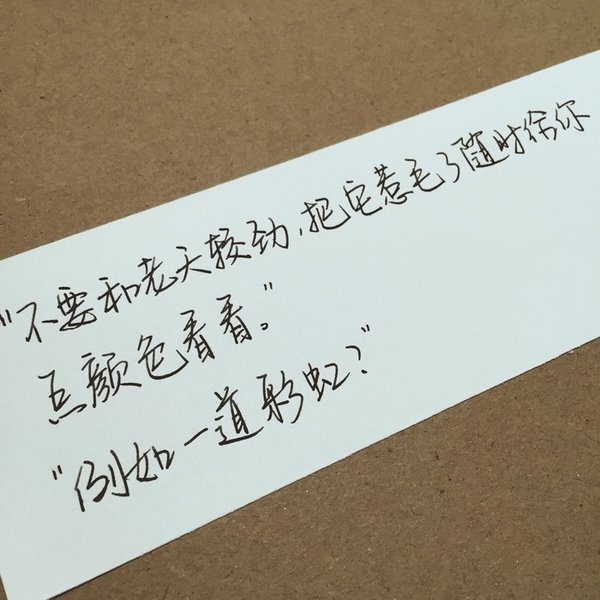 "不要和老天较劲,把它惹毛了随时给你
点颜色看看。"
"例如一道彩虹?"